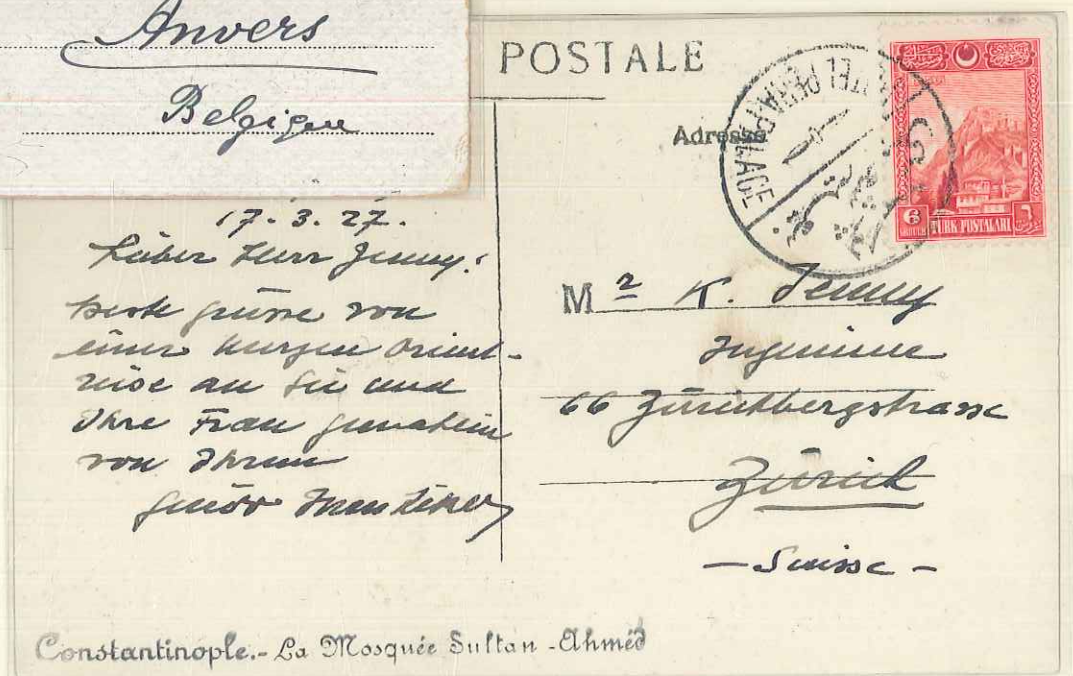 Anvers
Belgique
POSTALE
Adresse
HOTEL PERA PALACE
6
GROUCH
TÜRK POSTALARI
٦
17. 3. 27.
Lieber Herr Jenny!
Beste Grüsse von
einer kurzen Orient-
reise an Sie und
Ihre Frau Gemahlin
von Ihrem
Guido
Mr K. Jenny
Ingenieur
66 Zürichbergstrasse
Zürich
- Suisse -
Constantinople.- La Mosquée Sultan-Ahméd